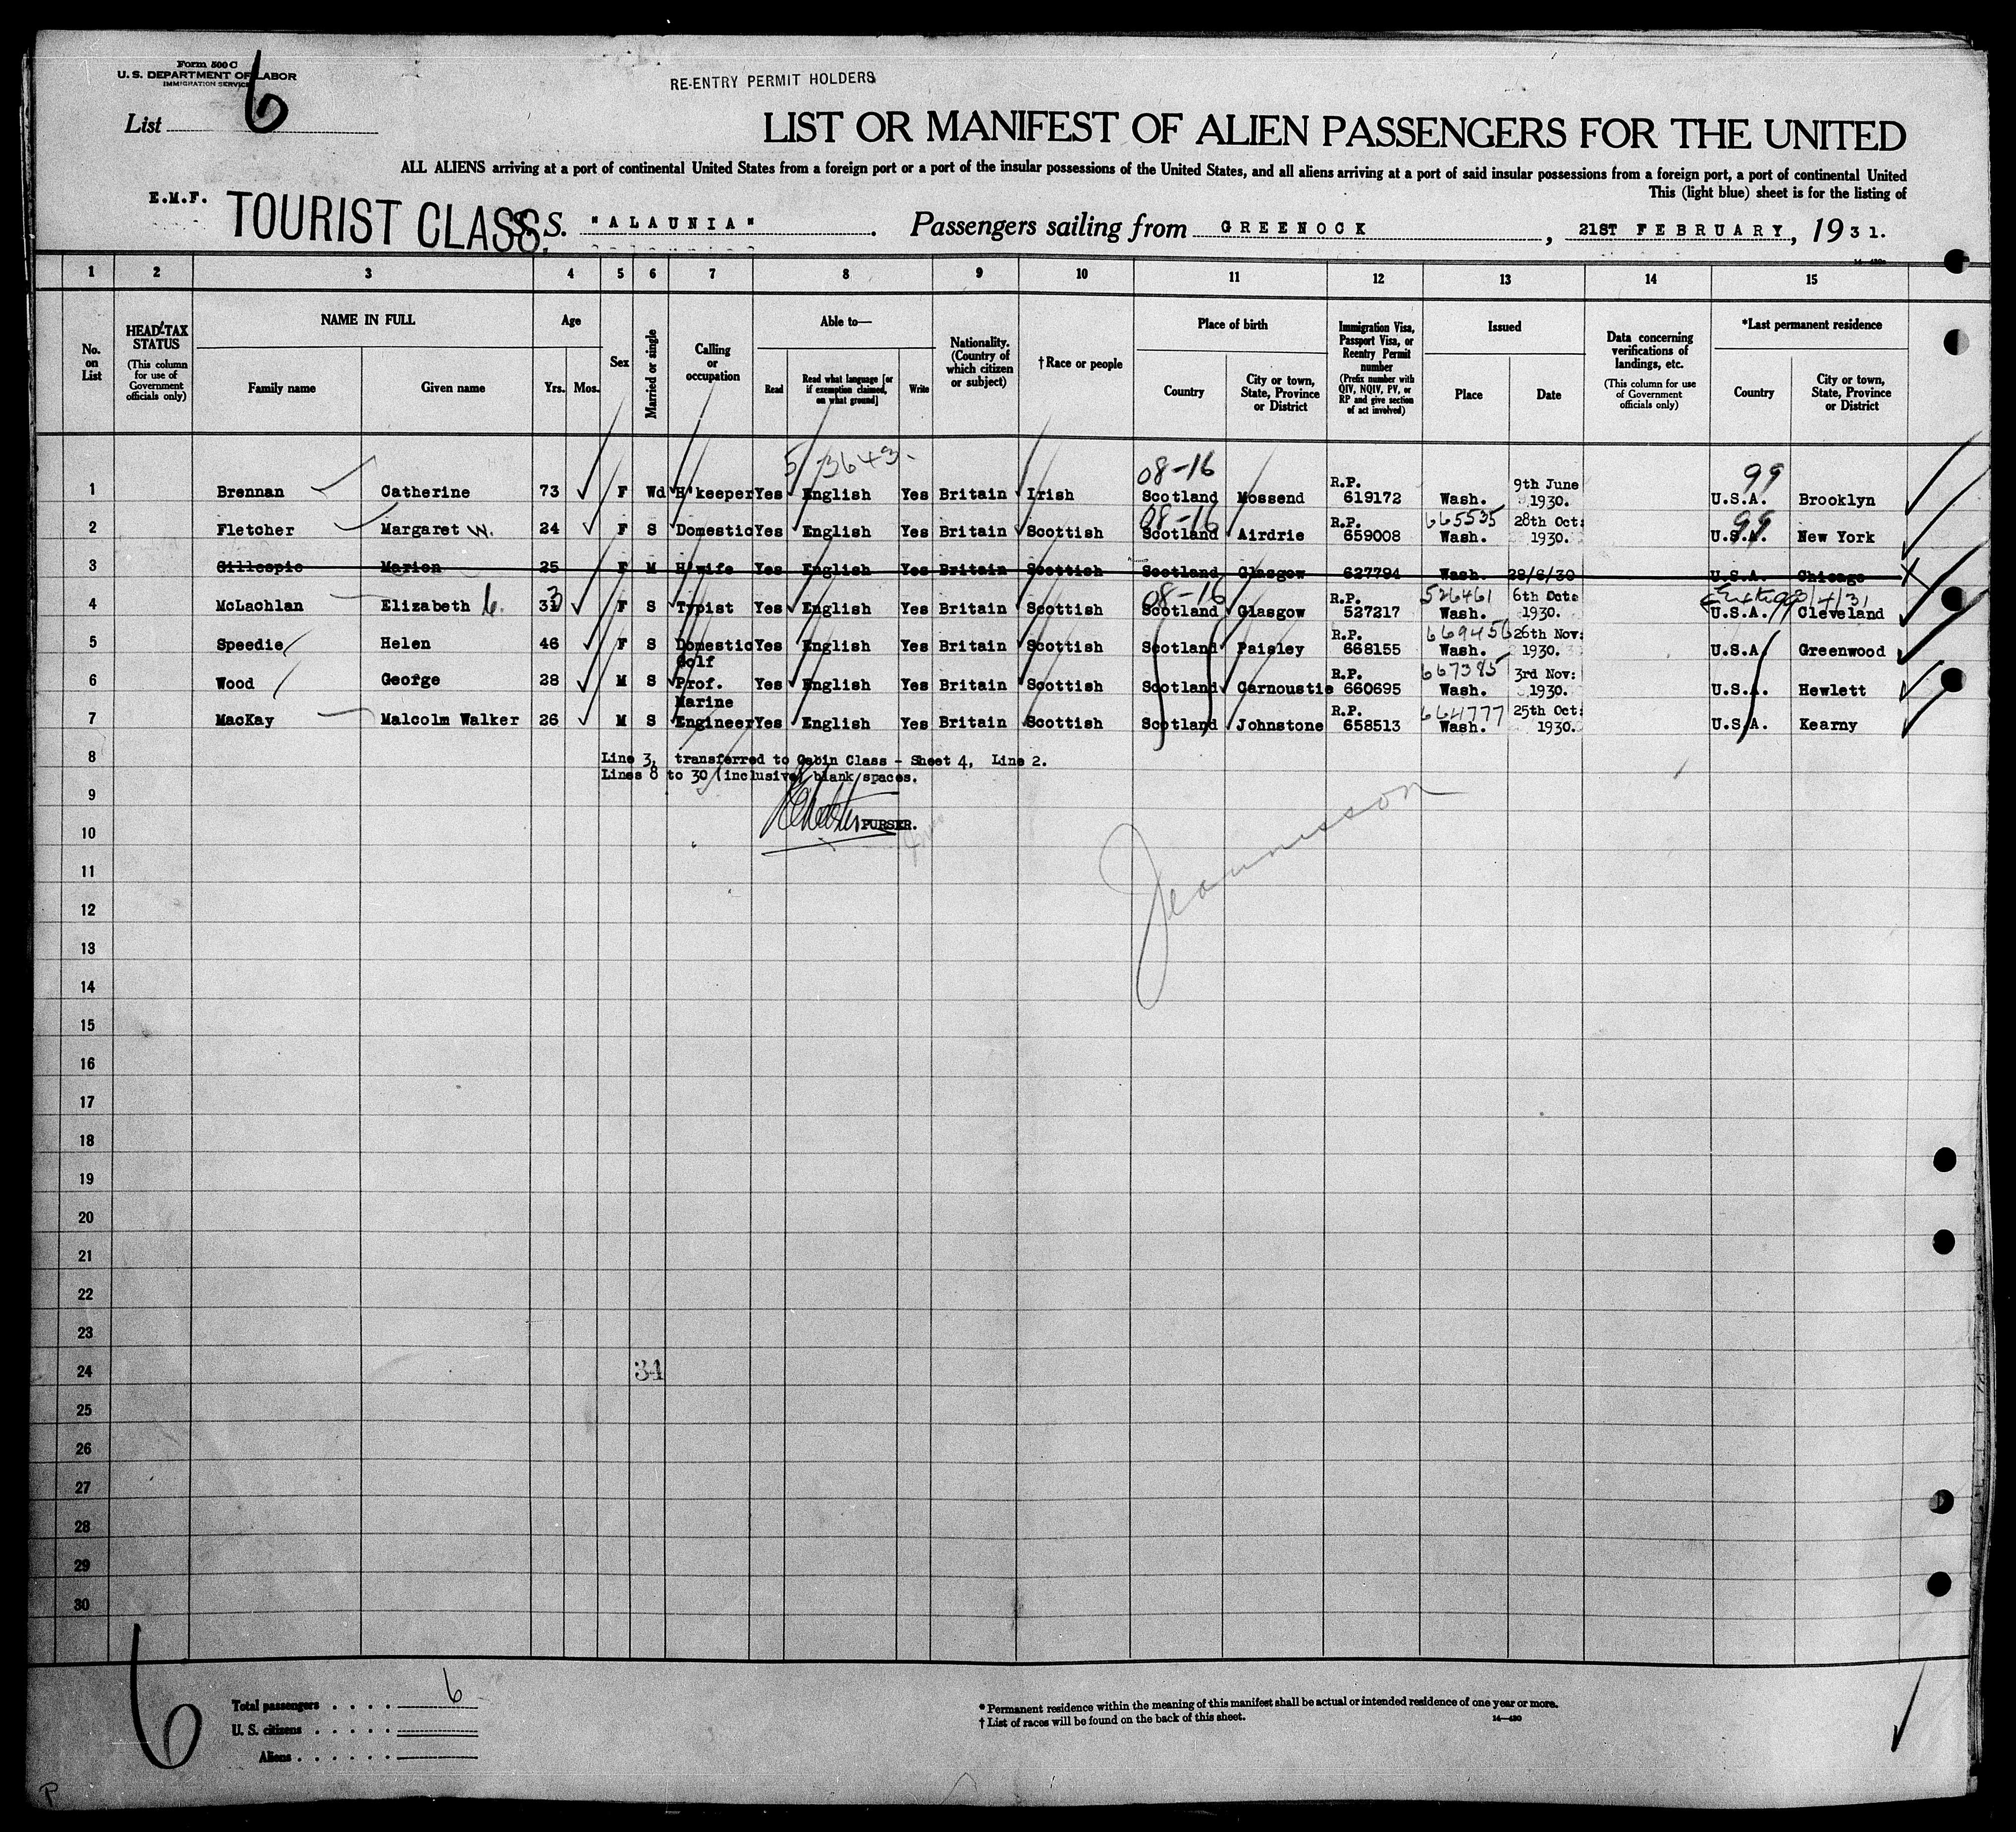 Form 500 C
U. S. DEPARTMENT OF LABOR
IMMIGRATION SERVICE
RE-ENTRY PERMIT HOLDERS
List 6
LIST OR MANIFEST OF ALIEN PASSENGERS FOR THE UNITED
ALL ALIENS arriving at a port of continental United States from a foreign port or a port of the insular possessions of the United States, and all aliens arriving at a port of said insular possessions from a foreign port, a port of continental United
This (light blue) sheet is for the listing of
E.M.F.
TOURIST CLASS. S. S. "ALAUNIA". Passengers sailing from GREENOCK, 21ST FEBRUARY, 1931.
1 2 3 4 5 6 7 8 9 10 11 12 13 14 15
No. on List
HEAD-TAX STATUS (This column for use of Government officials only)
NAME IN FULL Family name Given name
Age Yrs. Mos.
Sex
Married or single
Calling or occupation
Able to— Read Read what language [or if exemption claimed, on what ground] Write
Nationality. (Country of which citizen or subject)
†Race or people
Place of birth Country City or town, State, Province or District
Immigration Visa, Passport Visa, or Reentry Permit number (Prefix number with QIV, NQIV, PV, or RP and give section of act involved)
Issued Place Date
Data concerning verifications of landings, etc. (This column for use of Government officials only)
*Last permanent residence Country City or town, State, Province or District
5/3643-
1 Brennan Catherine 73 F Wd H'keeper Yes English Yes Britain Irish 08-16 Scotland Mossend R.P. 619172 Wash. 9th June 1930. 99 U.S.A. Brooklyn
2 Fletcher Margaret W. 24 F S Domestic Yes English Yes Britain Scottish 08-16 Scotland Airdrie R.P. 659008 665535 Wash. 28th Oct: 1930. 99 U.S.A. New York
3 Gillespie Marion 25 F M H'wife Yes English Yes Britain Scottish Scotland Glasgow 627794 Wash. 28/6/30 U.S.A. Chicago
4 McLachlan Elizabeth C. 33 F S Typist Yes English Yes Britain Scottish 08-16 Scotland Glasgow R.P. 527217 526461 Wash. 6th Oct: 1930. U.S.A. Cleveland
5 Speedie Helen 46 F S Domestic Yes English Yes Britain Scottish Scotland Paisley R.P. 668155 669456 Wash. 26th Nov: 1930. U.S.A. Greenwood
6 Wood George 28 M S Golf Prof. Yes English Yes Britain Scottish Scotland Carnoustie R.P. 660695 667385 Wash. 3rd Nov: 1930. U.S.A. Hewlett
7 MacKay Malcolm Walker 26 M S Marine Engineer Yes English Yes Britain Scottish Scotland Johnstone R.P. 658513 664777 Wash. 25th Oct: 1930. U.S.A. Kearny
8 Line 3, transferred to Cabin Class - Sheet 4, Line 2.
Lines 8 to 30 (inclusive) blank spaces.
9
10 PURSER.
11
12
13
14
15
16
17
18
19
20
21
22
23
24 34
25
26
27
28
29
30
6
Total passengers . . . . 6
U. S. citizens . . . . .
Aliens . . . . . .
* Permanent residence within the meaning of this manifest shall be actual or intended residence of one year or more.
† List of races will be found on the back of this sheet.
14—430
P